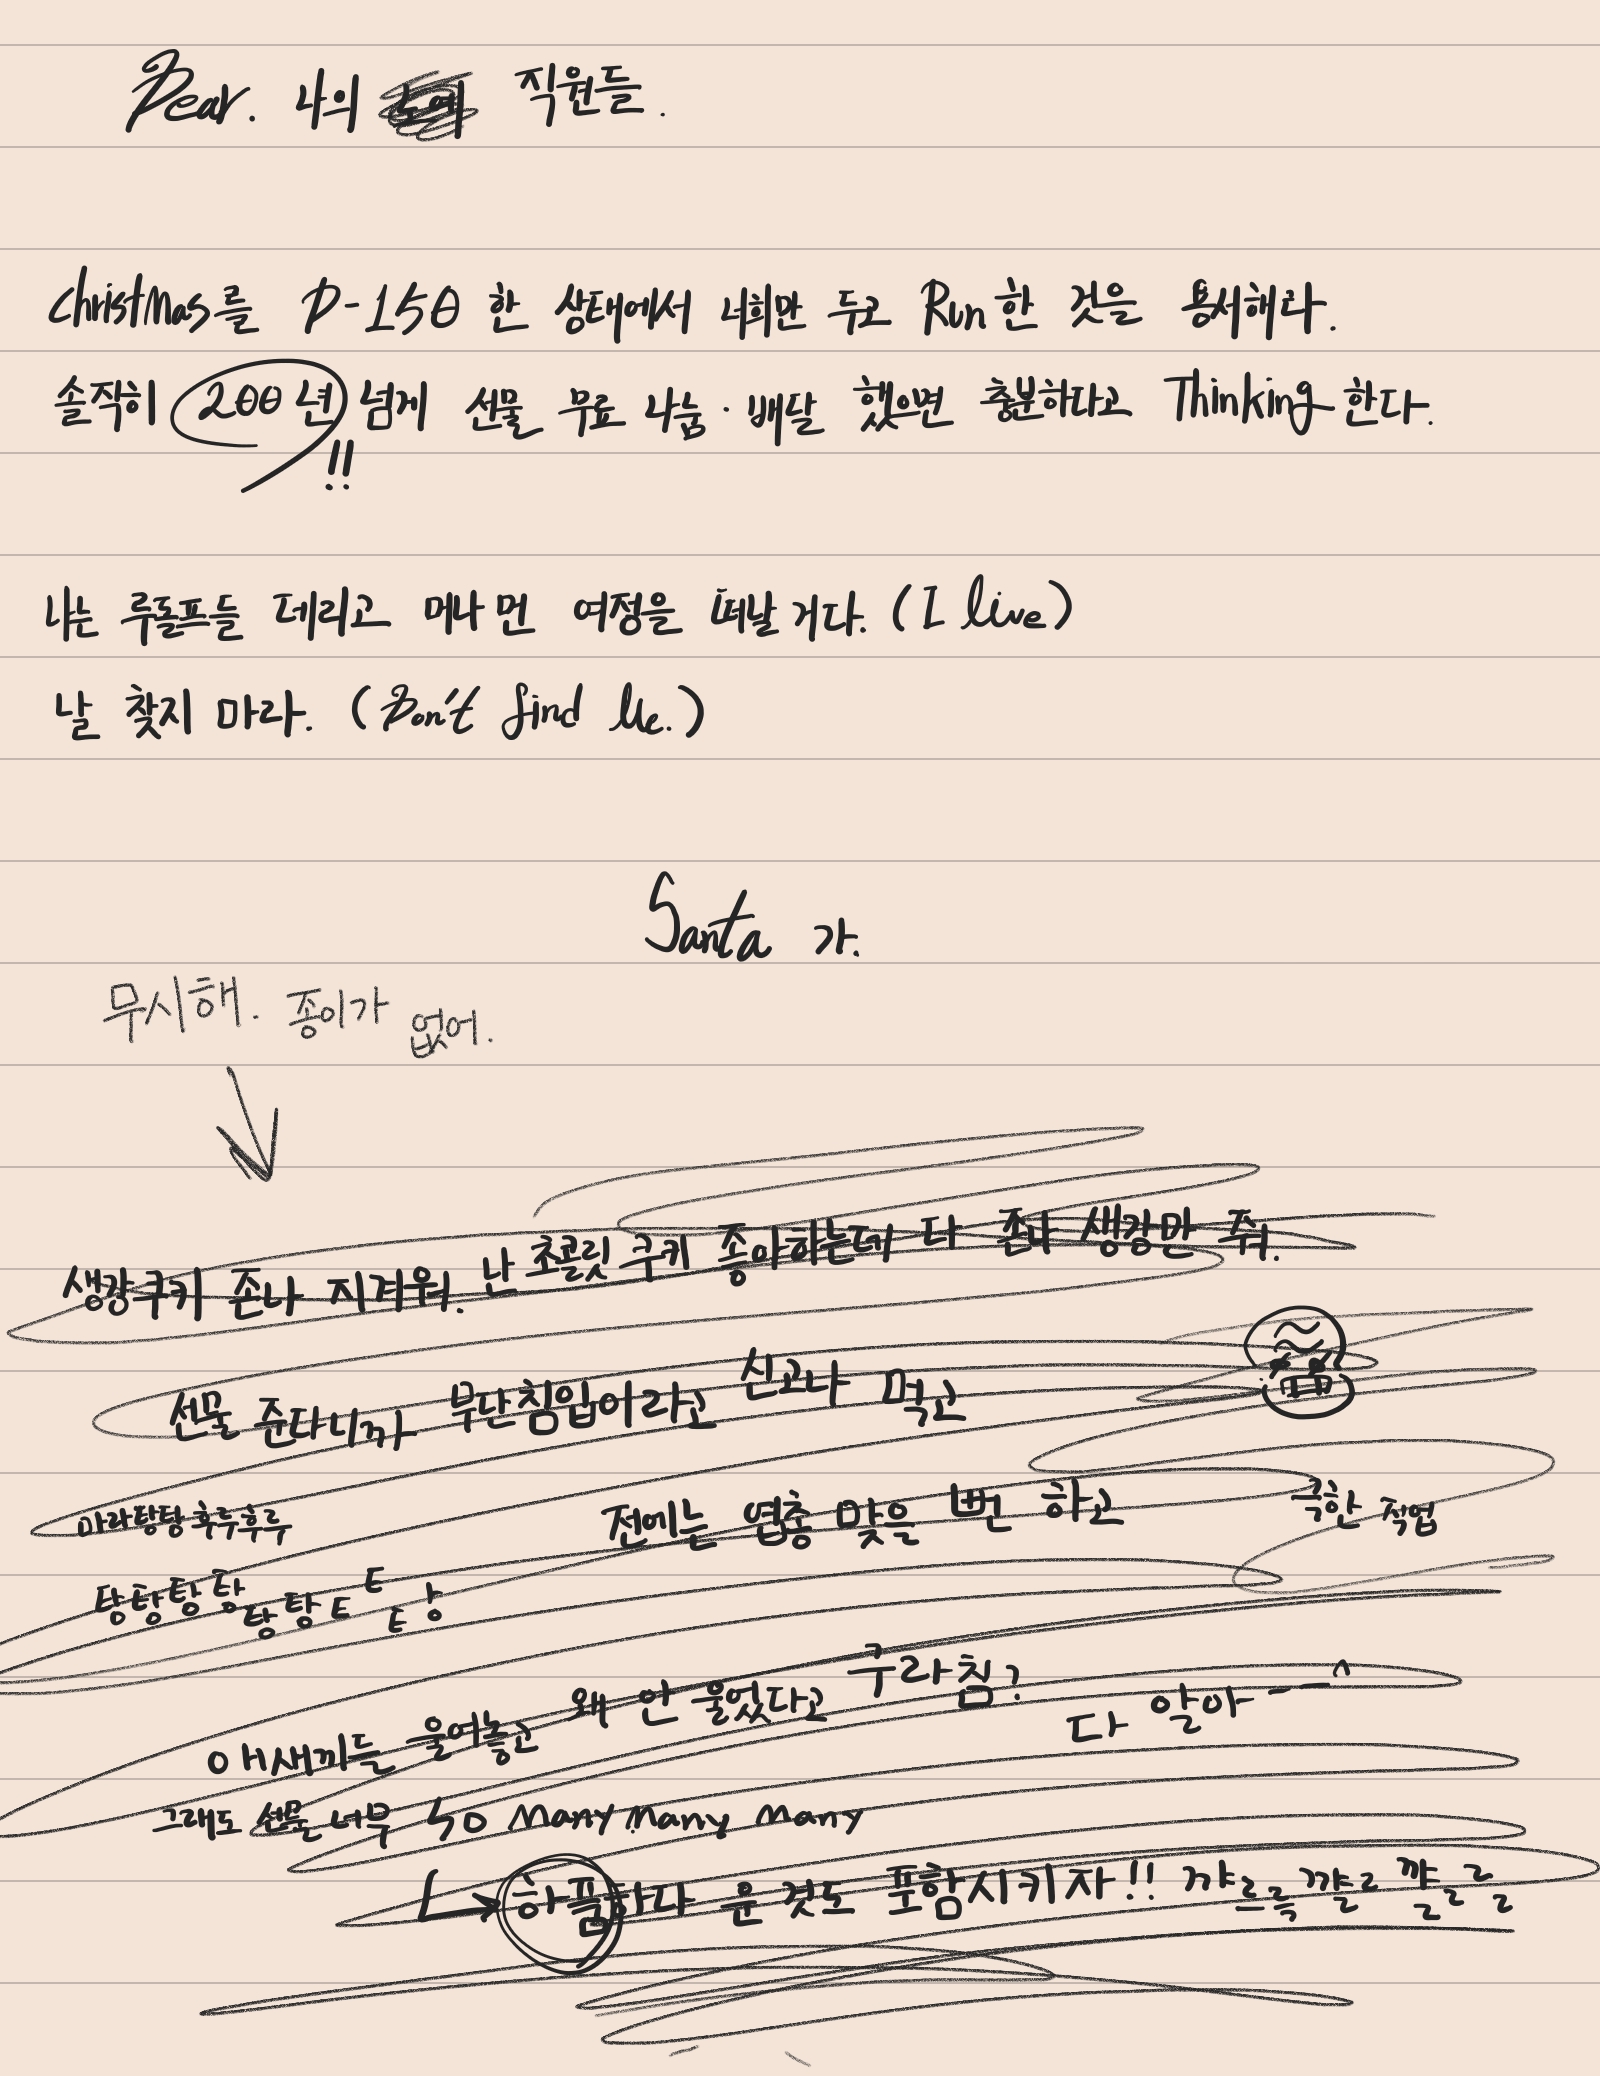 Dear. 나의 노예 직원들.
Christmas를 D-150 한 상태에서 너희만 두고 Run한 것을 용서해라.
솔직히 200년 넘게 선물 무료 나눔·배달 했으면 충분하다고 Thinking한다.
!!
나는 루돌프들 데리고 머나먼 여정을 떠날 거다. (I live)
날 찾지 마라. (Don't find Me.)
Santa 가.
무시해. 종이가 없어.
생강쿠키 존나 지겨워. 난 초콜릿 쿠키 좋아하는데 다 존나 생강만 줘.
선물 준다니까 무단침입이라고 신고나 먹고
마라탕탕 후루후루 전에는 엽총 맞을 뻔 하고 극한 직업
탕탕탕탕탕탕ㅌㅌㅌ앙
ㅇㅐ새끼들 울어놓고 왜 안 울었다고 구라침? 다 알아ㅡㅡ^
그래도 선물 너무 so many many many
하품하다 운 것도 포함시키자!! 꺄르륵꺌ㄹ꺌ㄹㄹ